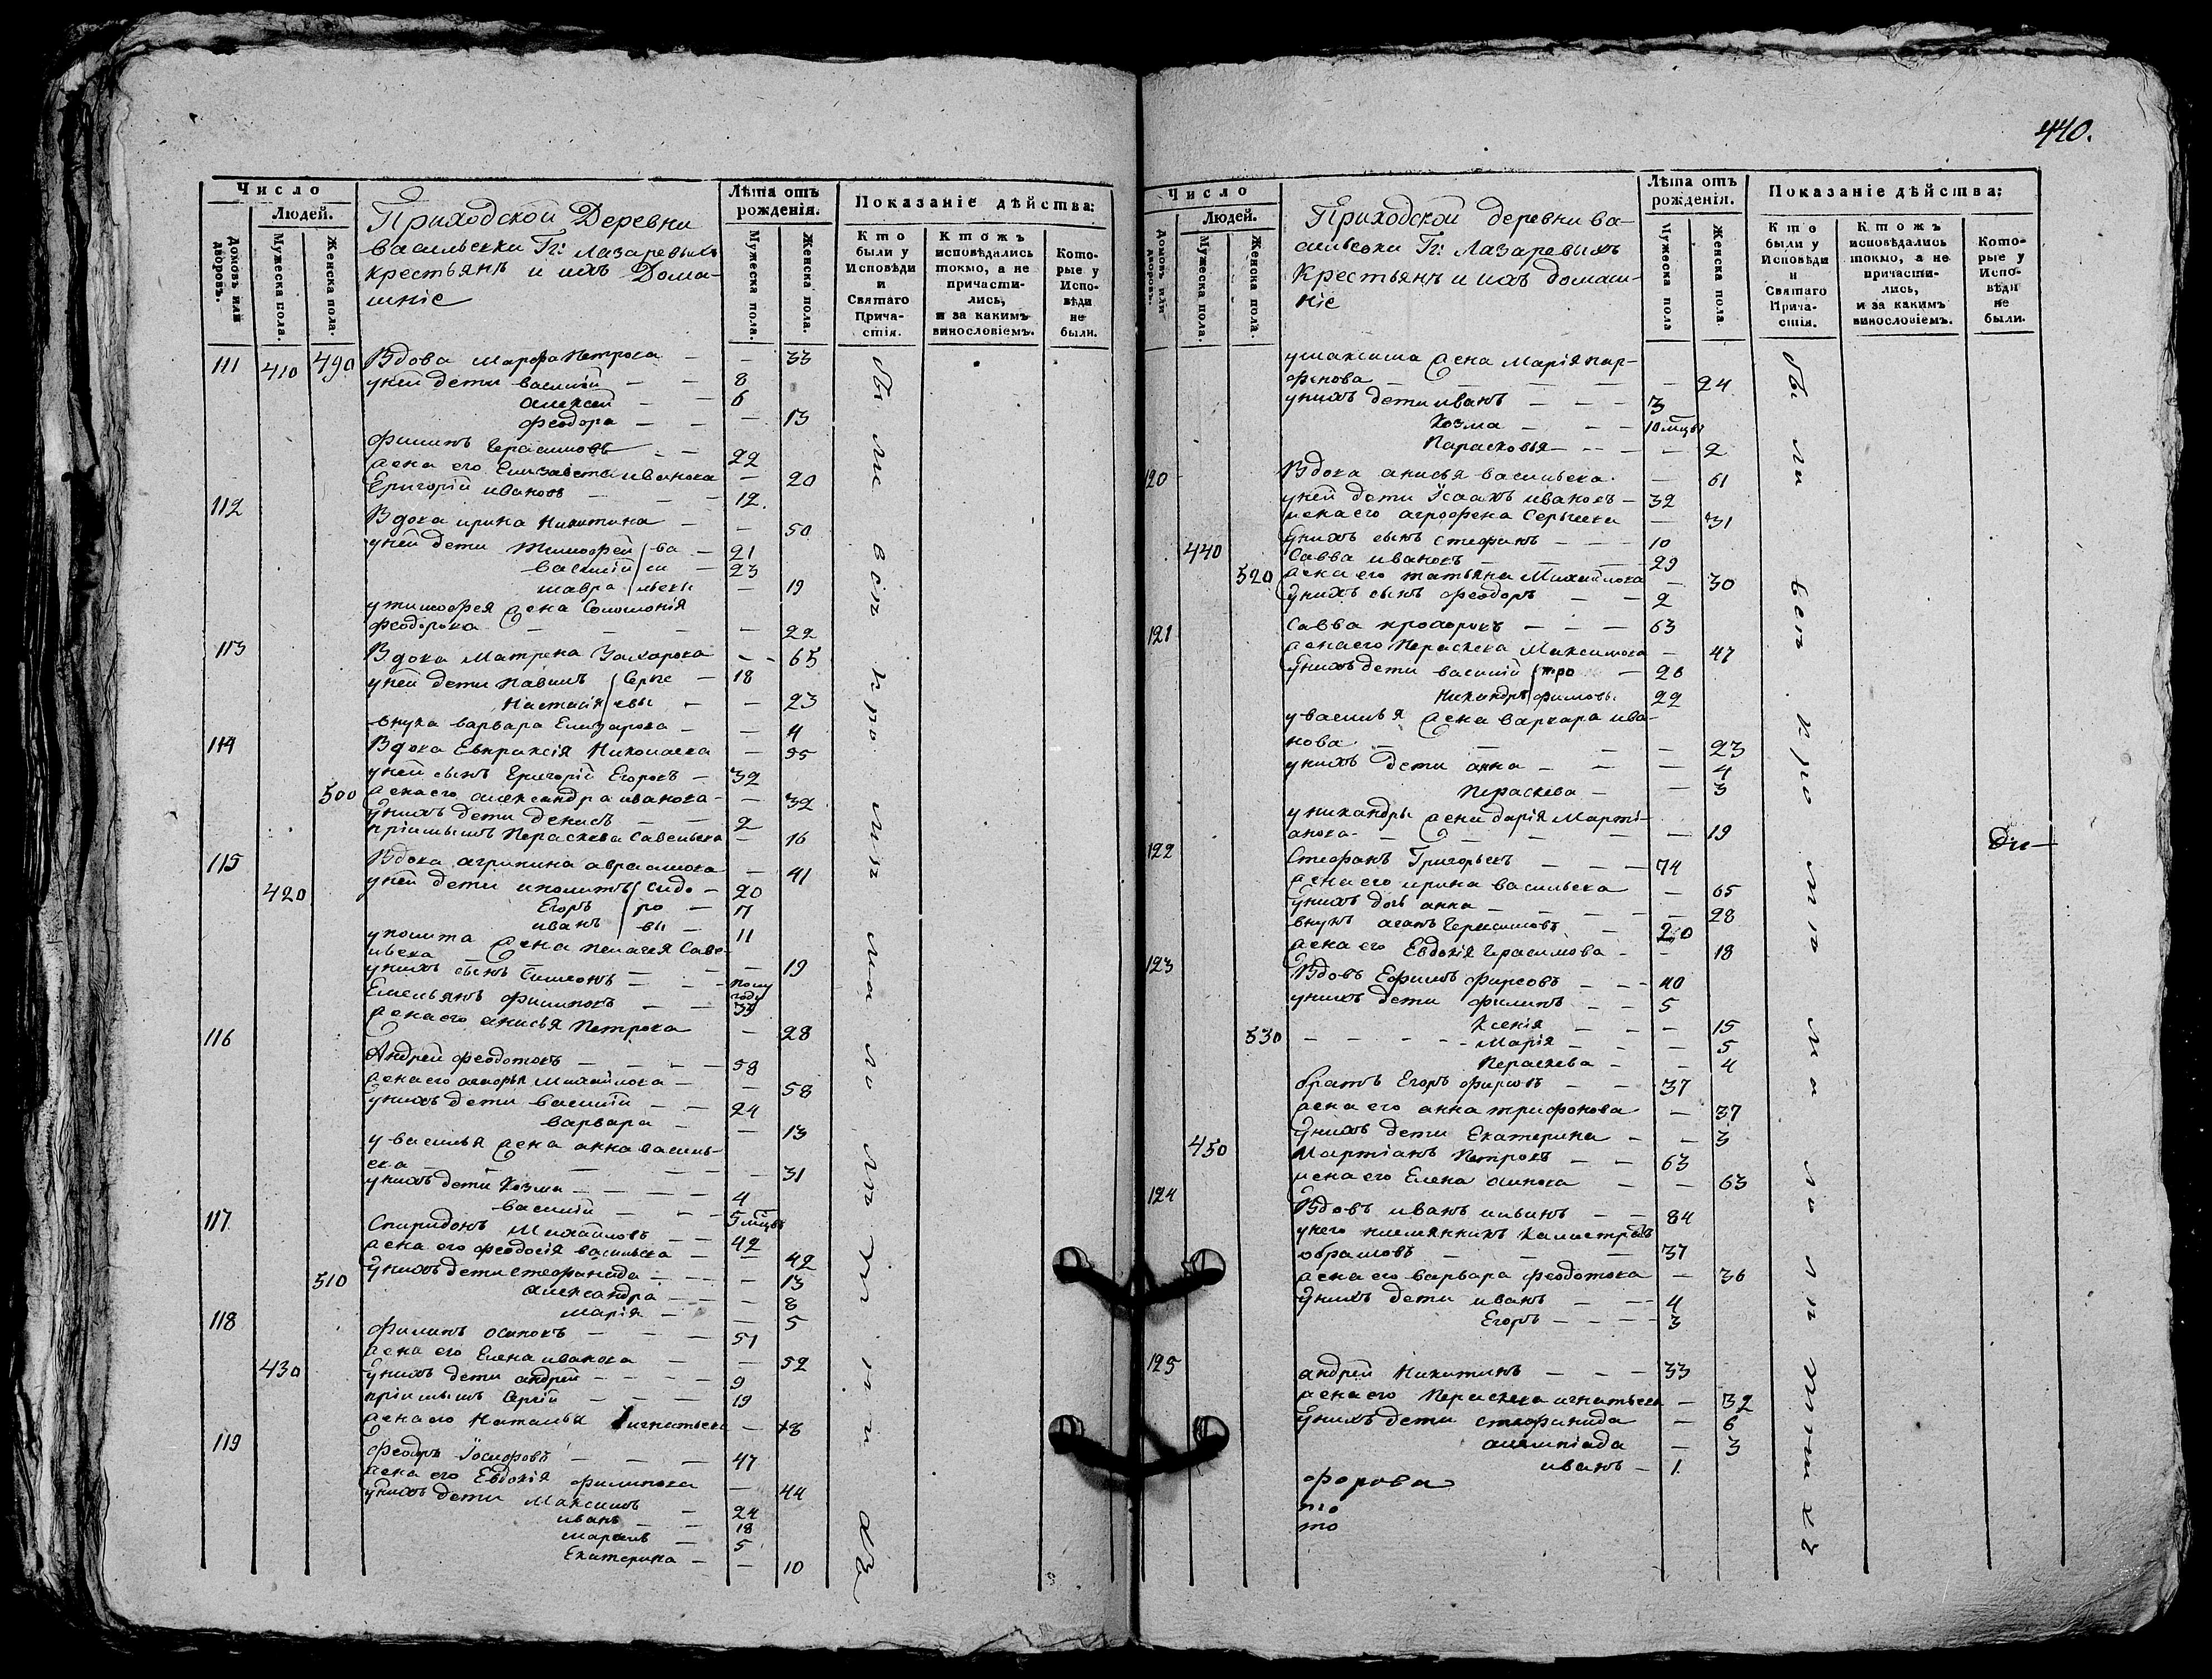 440.
Число
Людей.
Домовъ или дворовъ.
Мужеска пола.
Женска пола.
Приходской Деревни
васильевки Гг: Лазаревыхъ
крестьянъ и ихъ Дома-
шніе
Лѣта отъ рожденія.
Мужеска пола.
Женска пола.
Показаніе дѣйства:
Кто были у Исповѣди и Святаго Прича-стія.
Ктожъ исповѣдались токмо, а не причасти-лись, и за какимъ винословіемъ.
Кото-рые у Испо-вѣди не были.
111 410 490 Вдова Марфа Петрова — — 33
уней дети василій — — 8
алексей — — 6
феодора — — — 13
филипъ Герасимовъ — — 22
жена его Елизавета иванова — 20
Григорій ивановъ — — — 12.
112 Вдова ирина Никитина — — 50
уней дети Тимофей ва — 21
василій си — 23
мавра льевы — 19
утимофея жена Соломонія
феодорова — — — — 22
113 Вдова Матрена Захарова — — 65
уней дети Павилъ Серге — 18
Настасія евы — — 23
внука варвара Елизарова — — 4
114 Вдова Евпраксія Николаева — 55
уней сынъ Григорій Егоровъ — 32
500 жена его александра иванова — — 32
унихъ дети денисъ — — 2
пріимышъ Парасkева Савельева — 16
115 Вдова агрипина авраамова — 41
420 уней дети иполитъ сидо — 20
Егоръ ро — 17
иванъ вы — 11
уполита жена пелагея Саве-
льева — — — — 19
унихъ сынъ Симеонъ — — — полу году
Емельянъ филиповъ — — 35
жена его анисья Петрова — 28
116 Андрей феодотовъ — — — — 58
жена его Михайлова — — 58
унихъ дети василій — — 24
варвара — — 13
увасилья жена анна василь-
ева — — — — — 31
унихъ дети Козма — — — — 4
василій — — — 5 мцовъ
117 Спиридонъ Михайловъ — — 42
жена его феодосія васильева — — 42
510 унихъ дети стефанида — — — 13
александра — — — 8
марія — — 5
118 филипъ осиповъ — — — 51
жена его Елена иванова — — 52
430 унихъ дети андрей — — — — 9
пріимышъ Сергій — — — 19
жена его Наталья игнатьева — 18
119 феодоръ Іосифовъ — — — 47
жена его Евдокія филипова — 44
унихъ дети Максимъ — 24
иванъ — — 18
— 5
Екатерина — — 10
были всѣ кромѣ малолѣтныхъ
Число
Людей.
Домовъ или дворовъ.
Мужеска пола.
Женска пола.
Приходской деревни ва-
сильевки Гг: Лазаревыхъ
Крестьянъ и ихъ домаш-
ніе
Лѣта отъ рожденія.
Мужеска пола
Женска пола.
Показаніе дѣйства:
Кто были у Исповѣди и Святаго Прича-стія.
Ктожъ исповѣдались токмо, а не причасти-лись, и за какимъ винословіемъ.
Кото-рые у Испо-вѣди не были.
умаксима жена Марія пар-
фенова — — — — — — 24
унихъ дети иванъ — — — 3
Козма — — — 10 мцовъ
Парасковья — — — — 2
120 Вдова анисья васильева — 61
уней дети Ісаакъ ивановъ — 32
жена его агрофена Сергеева — 31
унихъ сынъ стефанъ — — — 10
440 Савва ивановъ — — — 29
520 жена его татьяна Михайлова — 30
унихъ сынъ феодоръ — — 2
121 Савва прохоровъ — — — 63
жена его Парасkева Максимова — 47
унихъ дети василій тро — 26
Никандръ фимовы 22
увасилья жена варвара ива-
нова — — — — 23
унихъ дети анна — — — 4
Парасkева — — 3
уникандры жена дарія Марті-
анова — — — — 19
122 Стефанъ Григорьевъ — — — 74
жена его ирина васильева — 65
унихъ дочь анна — — — — 28
внукъ Герасимовъ — 20
жена его Евдокія Герасимова — — 18
123 Вдовъ Ефимъ фирсовъ — — — 40
унихъ дети филипъ — — 5
Ксенія — — — 15
530 — — — — Марія — — — 5
Парасkева — — 4
братъ Егоръ фирсовъ — — 37
жена его анна трифонова — 37
унихъ дети Екатерина — — 3
450 Мартіанъ Петровъ — — 63
жена его Елена осипова — — 63
124 Вдовъ иванъ ильинъ — — 84
унего племянникъ Калистратъ
обрамовъ — — — 37
жена его варвара феодотова — 36
унихъ дети иванъ — — 4
Егоръ — — — — 3
125 андрей Никитинъ — — — 33
жена его Парасkева игнатьева — 32
унихъ дети стефанида — 6
олимпіада — 3
иванъ — 1.
были всѣ кромѣ малолѣтныхъ